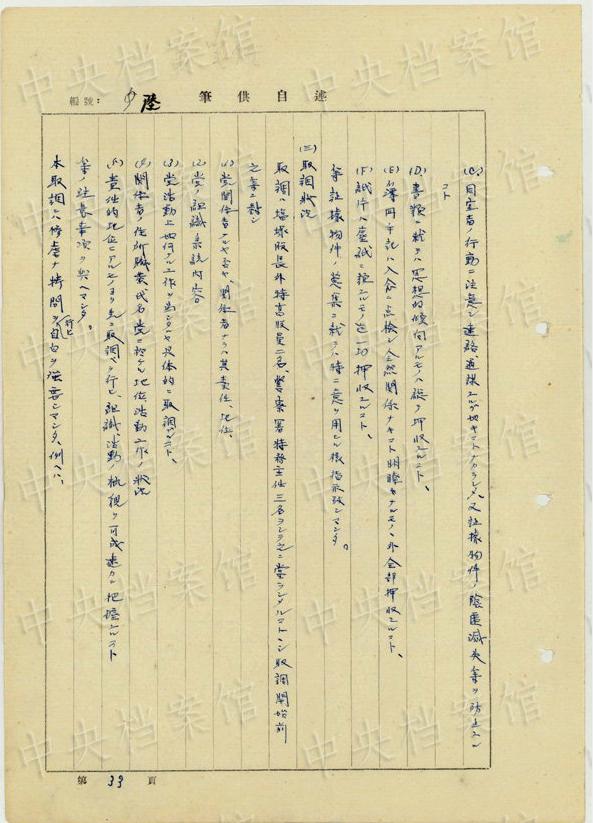 編號:
述自供筆
(C) 同室者ノ行動ニ注意シ連絡、通謀スルガ如キコトナカラシメ、又証據物件ノ隠匿滅失等ヲ防止スル
コト
(D) 書類ニ就テハ思想的傾向アルモノハ総テ押収スルコト、
(E) 名簿日手記ニハ入念ニ点検シ全然関係ナキコト明瞭ナルモノノ外全部押収スルコト、
(F) 紙片ハ塵紙ニ至ルモノ迄一切押収スルコト、
等証據物件ノ蒐集ニ就テハ特ニ意ヲ用ヒル様指示致シマシタ。
(三) 取調状況
取調ハ 股長外特高股員二名、警察署特務主任三名ヲシテ之ニ當ラシメルコトトシ取調開始前
之等ニ對シ
(1) 党関係者ナルヤ否ヤ、関係者ナラバ其責任、地位、
(2) 党ノ組織系統内容
(3) 党活動上如何ナル工作ヲ為シタルヤ具体的ニ取調ブルコト、
(4) 関係者ノ住所職業氏名党ニ於ケル地位活動工作ノ状況
(5) 責任的地位ニアルモノヨリ先ニ取調ベヲ行ヒ、組織活動ノ概貌ヲ可成速カニ把握スルコト
等ノ注意事項ヲ與ヘマシタ。
本取調ハ惨虐ナ拷問ヲ行ヒ自白ヲ強要シマシタ、例ヘバ、
第 33 頁
中央档案馆